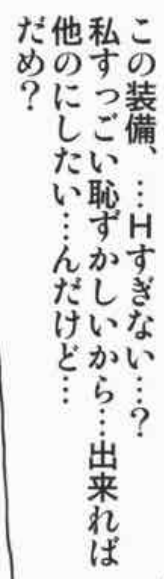 この装備、…Hすぎない…?
私すっごい恥ずかしいから…出来れば
他のにしたい…んだけど…
だめ?